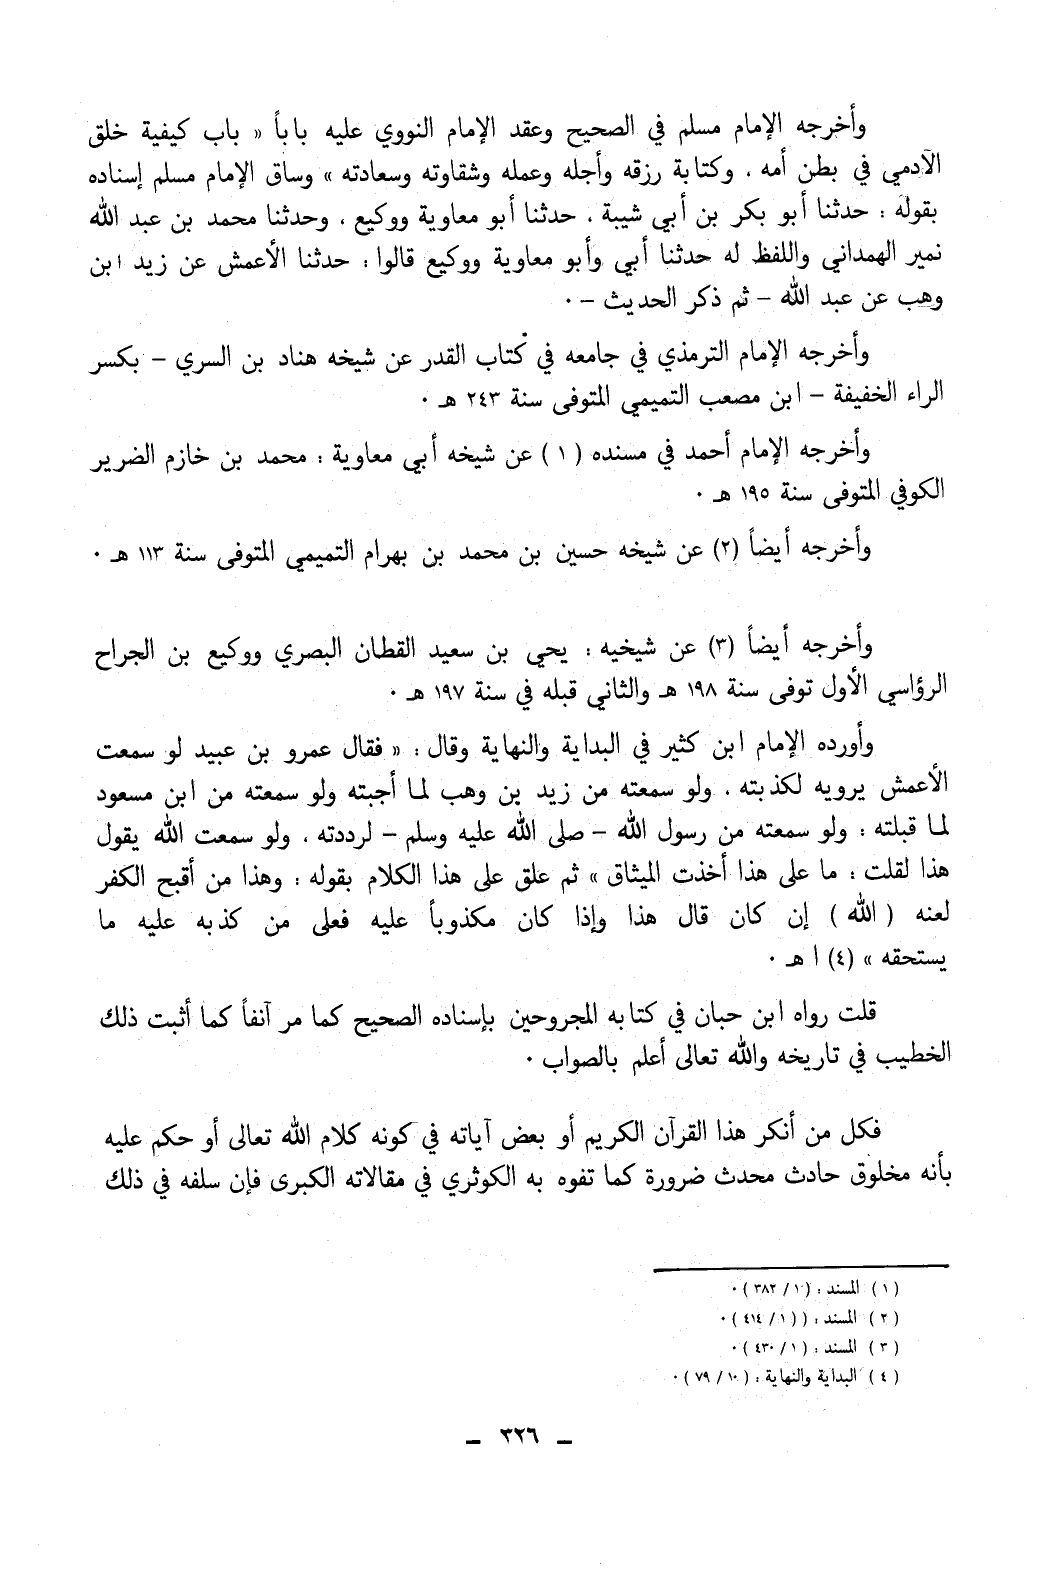 وأخرجه الإمام مسلم في الصحيح وعقد الإمام النووي عليه باباً « باب كيفية خلق
الآدمي في بطن أمه ، وكتابة رزقه وأجله وعمله وشقاوته وسعادته » وساق الإمام مسلم إسناده
بقوله : حدثنا أبو بكر بن أبي شيبة ، حدثنا أبو معاوية ووكيع ، وحدثنا محمد بن عبد الله
نمير الهمداني واللفظ له حدثنا أبي وأبو معاوية ووكيع قالوا : حدثنا الأعمش عن زيد ابن
وهب عن عبد الله – ثم ذكر الحديث – .
وأخرجه الإمام الترمذي في جامعه في كتاب القدر عن شيخه هناد بن السري – بكسر
الراء الخفيفة – ابن مصعب التميمي المتوفى سنة ٢٤٣ هـ .
وأخرجه الإمام أحمد في مسنده ( ١ ) عن شيخه أبي معاوية : محمد بن خازم الضرير
الكوفي المتوفى سنة ١٩٥ هـ .
وأخرجه أيضاً (٢) عن شيخه حسين بن محمد بن بهرام التميمي المتوفى سنة ١١٣ هـ .
وأخرجه أيضاً (٣) عن شيخيه : يحي بن سعيد القطان البصري ووكيع بن الجراح
الرؤاسي الأول توفى سنة ١٩٨ هـ والثاني قبله في سنة ١٩٧ هـ .
وأورده الإمام ابن كثير في البداية والنهاية وقال : « فقال عمرو بن عبيد لو سمعت
الأعمش يرويه لكذبته ، ولو سمعته من زيد بن وهب لما أجبته ولو سمعته من ابن مسعود
لما قبلته : ولو سمعته من رسول الله – صلى الله عليه وسلم – لرددته ، ولو سمعت الله يقول
هذا لقلت : ما على هذا أخذت الميثاق » ثم علق على هذا الكلام بقوله : وهذا من أقبح الكفر
لعنه ( الله ) إن كان قال هذا وإذا كان مكذوباً عليه فعلى من كذبه عليه ما
يستحقه » (٤) ا هـ .
قلت رواه ابن حبان في كتابه المجروحين بإسناده الصحيح كما مر آنفاً كما أثبت ذلك
الخطيب في تاريخه والله تعالى أعلم بالصواب .
فكل من أنكر هذا القرآن الكريم أو بعض آياته في كونه كلام الله تعالى أو حكم عليه
بأنه مخلوق حادث محدث ضرورة كما تفوه به الكوثري في مقالاته الكبرى فإن سلفه في ذلك
( ١ ) المسند : ( ١ / ٣٨٢ ) .
( ٢ ) المسند : ( ( ١ / ٤١٤ ) .
( ٣ ) المسند : ( ١ / ٤٣٠ ) .
( ٤ ) البداية والنهاية : ( ١٠ / ٧٩ ) .
– ٣٢٦ –